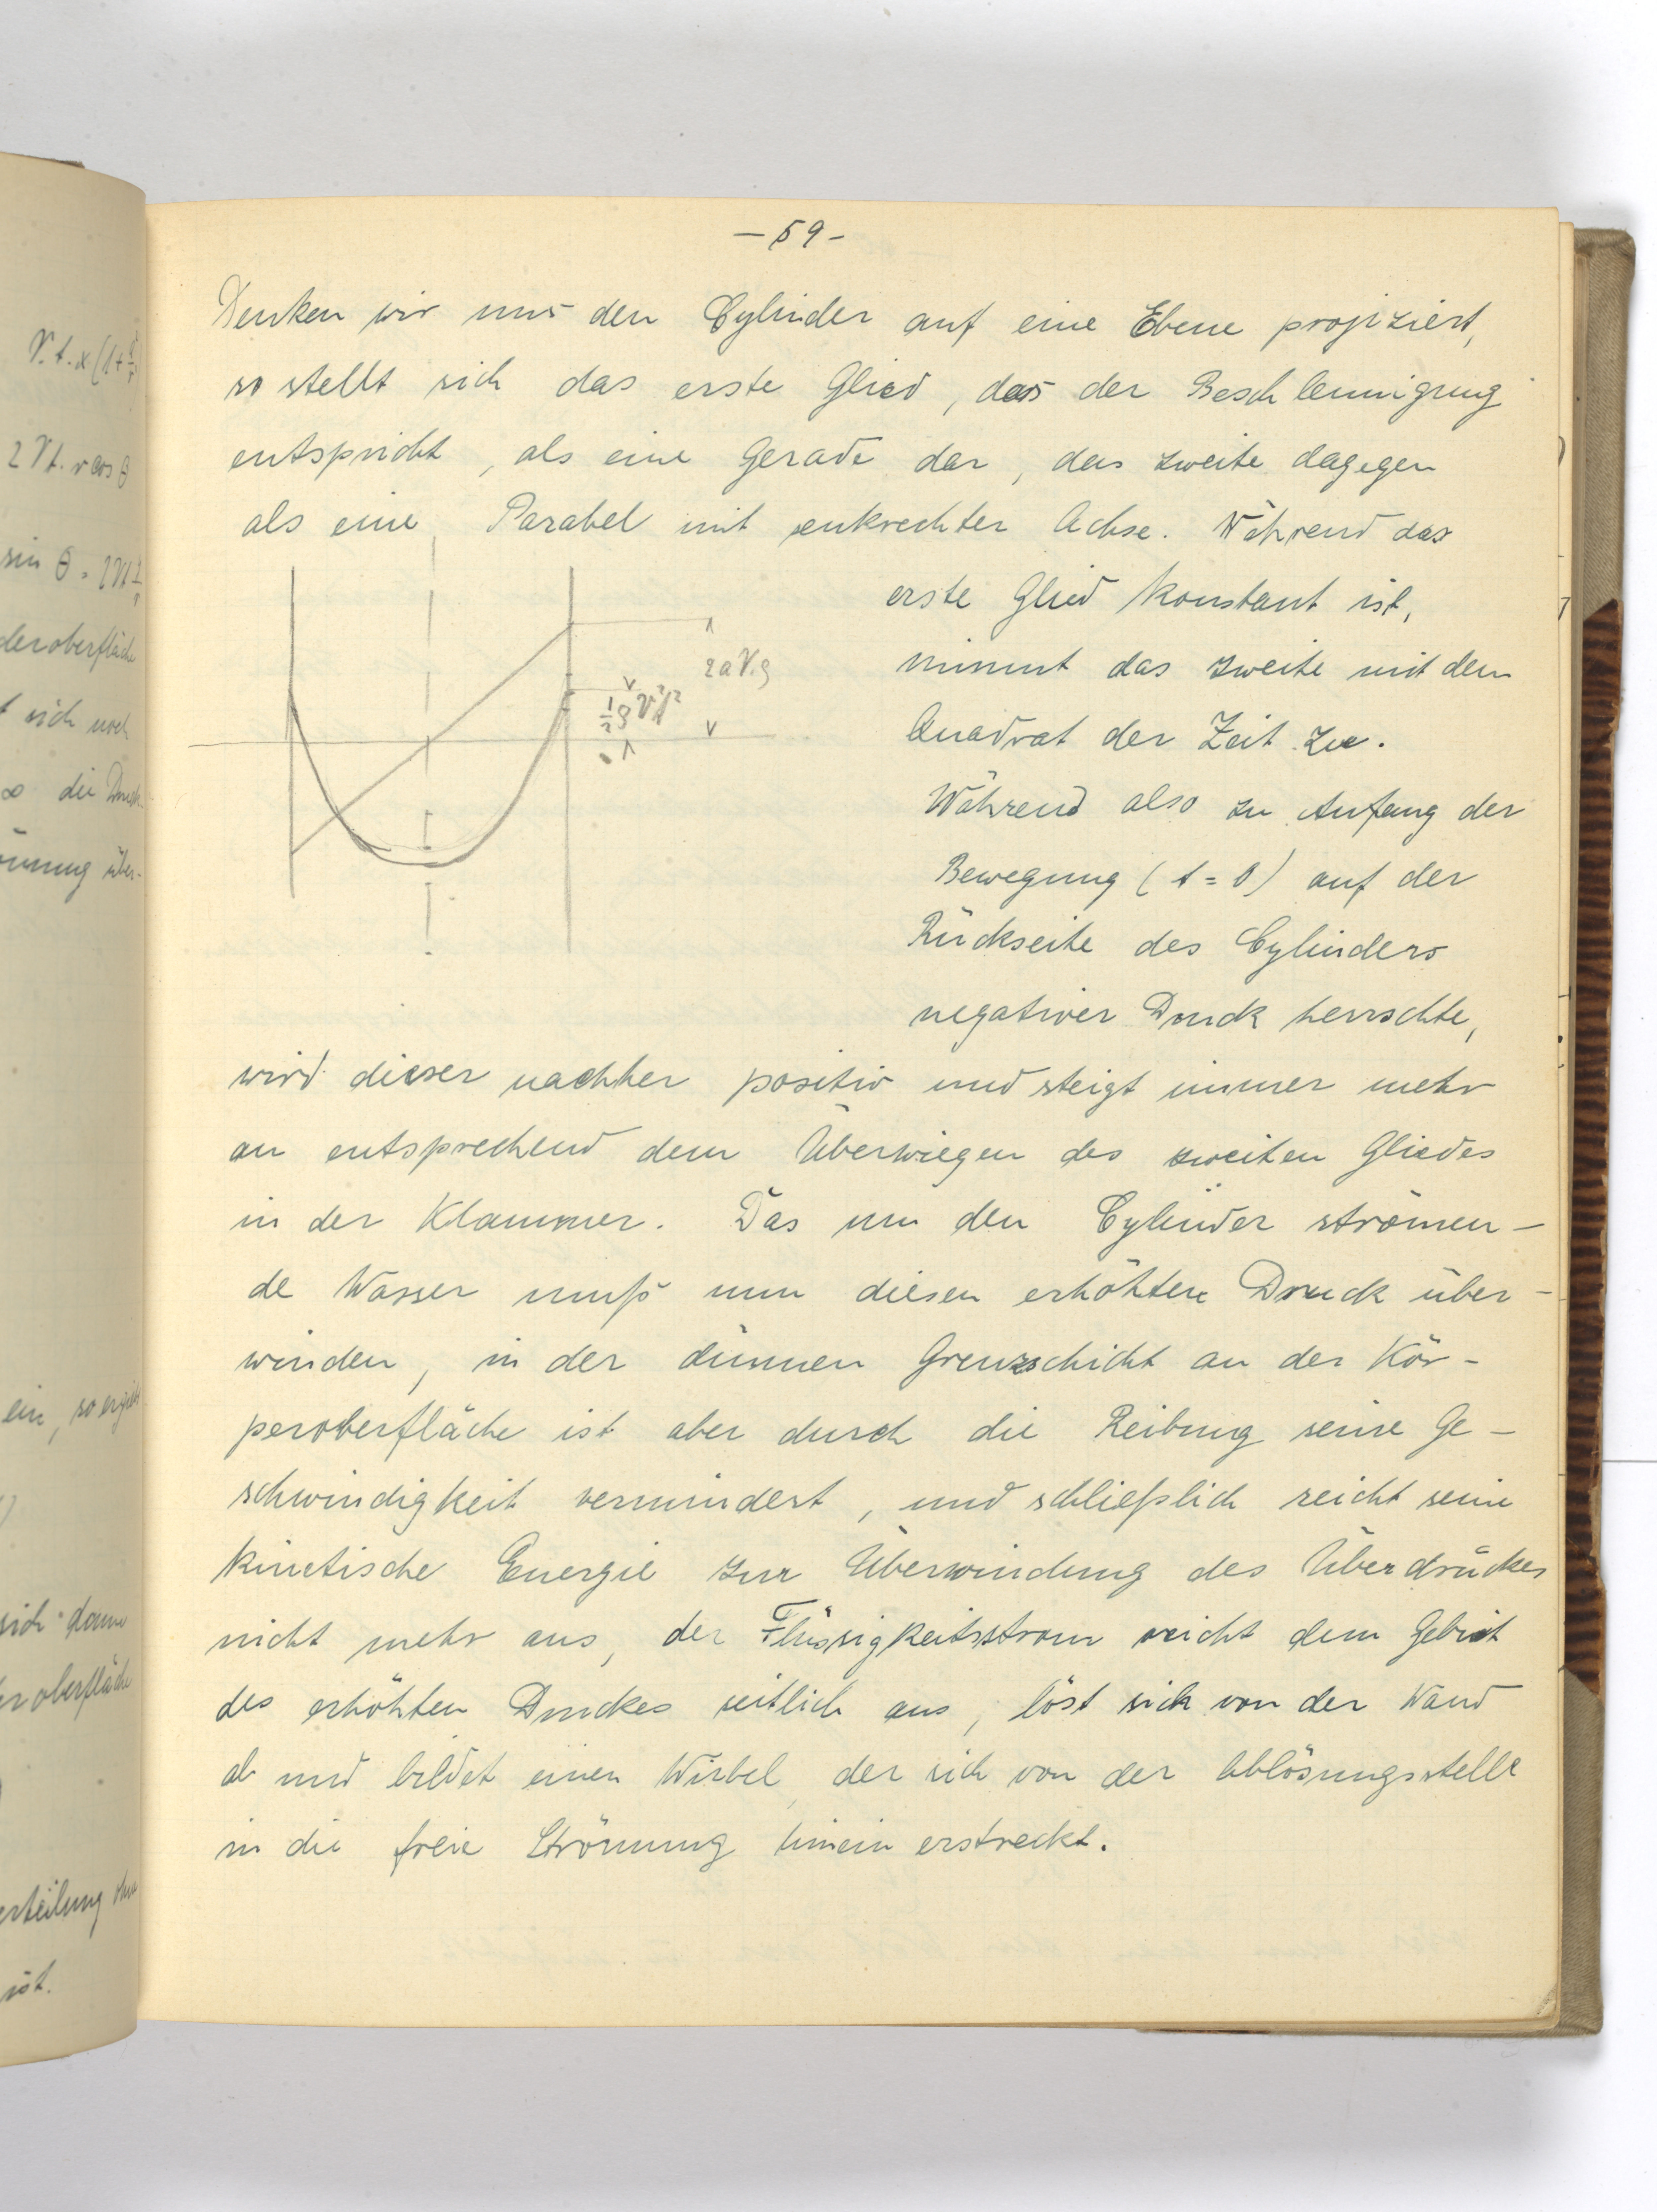 V.t.x(1+
2Vt.r cos θ
sin θ = 2Vt
deroberfläche
t sich noch
∞ die Druck-
ömung über-
ein, so ergibt
sich dann
er oberfläche
erteilung
ist.
– 59 –
Denken wir uns den Cylinder auf eine Ebene projiziert,
so stellt sich das erste Glied, das der Beschleunigung
entspricht, als eine Gerade dar, das zweite dagegen
als eine Parabel mit senkrechter Achse. Während das
erste Glied konstant ist,
nimmt das zweite mit dem
Quadrat der Zeit zu.
Während also zu Anfang der
Bewegung (t = 0) auf der
Rückseite des Cylinders
negativer Druck herrschte,
2aV.ρ
½ρV²t²
wird dieser nachher positiv und steigt immer mehr
an entsprechend dem Überwiegen des zweiten Gliedes
in der Klammer. Das um den Cylinder strömen–
de Wasser muß nun diesen erhöhten Druck über–
winden, in der dünnen Grenzschicht an der Kör–
peroberfläche ist aber durch die Reibung seine Ge–
schwindigkeit vermindert, und schließlich reicht seine
kinetische Energie zur Überwindung des Überdruckes
nicht mehr aus, der Flüssigkeitsstrom weicht dem Gebiet
des erhöhten Druckes seitlich aus, löst sich von der Wand
ab und bildet einen Wirbel, der sich von der Ablösungsstelle
in die freie Strömung hinein erstreckt.